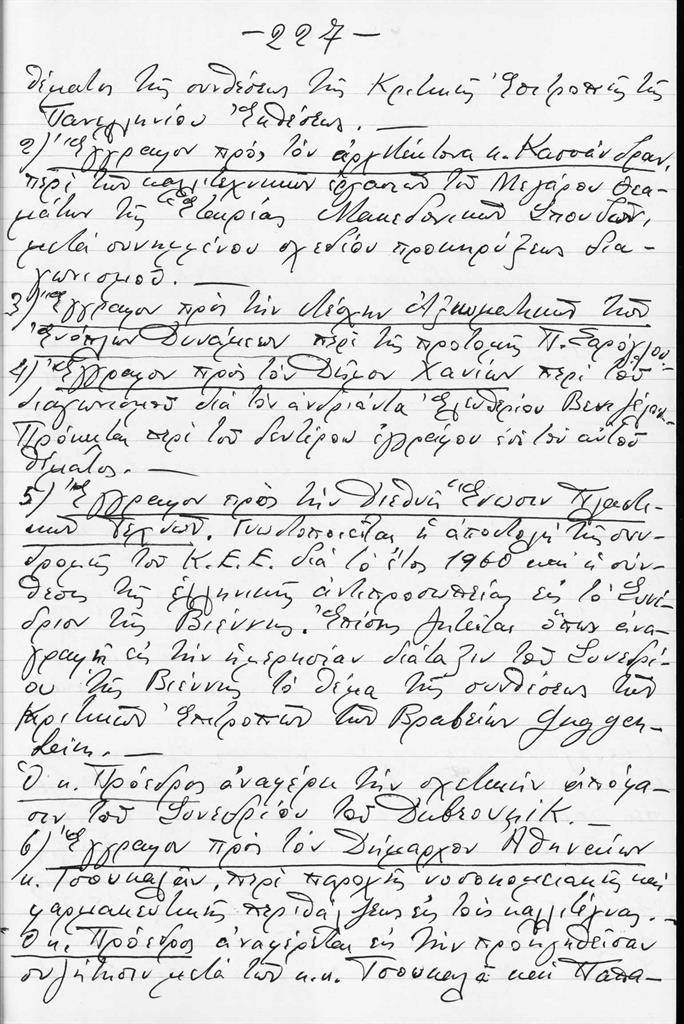 -227-
θέματος τῆς συνθέσεως τῆς Κριτικῆς Ἐπιτροπῆς τῆς
Πανελληνίου Ἐκθέσεως. —
2) Ἔγγραφον πρός τόν ἀρχιτέκτονα κ. Κασσάνδραν,
περί τῶν καλλιτεχνικῶν ἐργασιῶν τοῦ Μεγάρου Θεα-
μάτων τῆς Ἑταιρίας Μακεδονικῶν Σπουδῶν,
μετά συνημμένου σχεδίου προκηρύξεως δια-
γωνισμοῦ. —
3) Ἔγγραφον πρός τήν Λέσχην Ἀξιωματικῶν τῶν
Ἐνόπλων Δυνάμεων περί τῆς προτομῆς Π. Σαρόγλου.
4) Ἔγγραφον πρός τόν Δῆμον Χανίων περί τοῦ
διαγωνισμοῦ διά τόν ἀνδριάντα Ἐλευθερίου Βενιζέλου.
Πρόκειται περί τοῦ δευτέρου ἐγγράφου ἐπί τοῦ αὐτοῦ
θέματος. —
5) Ἔγγραφον πρός τήν Διεθνῆ Ἕνωσιν Πλαστι-
κῶν Τεχνῶν. Γνωστοποιεῖται ἡ ἀποστολή τῆς συν-
δρομῆς τοῦ Κ.Ε.Ε. διά τό ἔτος 1960 καί ἡ σύν-
θεσις τῆς ἑλληνικῆς ἀντιπροσωπείας εἰς τό Συνέ-
δριον τῆς Βιέννης. Ἐπίσης ζητεῖται ὅπως ἀνα-
γραφῇ εἰς τήν ἡμερησίαν διάταξιν τοῦ Συνεδρί-
ου τῆς Βιέννης τό θέμα τῆς συνθέσεως τῶν
Κριτικῶν Ἐπιτροπῶν τῶν Βραβείων Guggen-
heim. —
Ὁ κ. Πρόεδρος ἀναφέρει τήν σχετικήν ἀπόφα-
σιν τοῦ Συνεδρίου τοῦ Dubrovnik. —
6) Ἔγγραφον πρός τόν Δήμαρχον Ἀθηναίων
κ. Τσουκαλᾶν, περί παροχῆς νοσοκομειακῆς καί
φαρμακευτικῆς περιθάλψεως εἰς τούς καλλιτέχνας. -
Ὁ κ. Πρόεδρος ἀναφέρεται εἰς τήν προκληθεῖσαν
συζήτησιν μετά τῶν κ.κ. Τσουκαλᾶ καί Παπα-